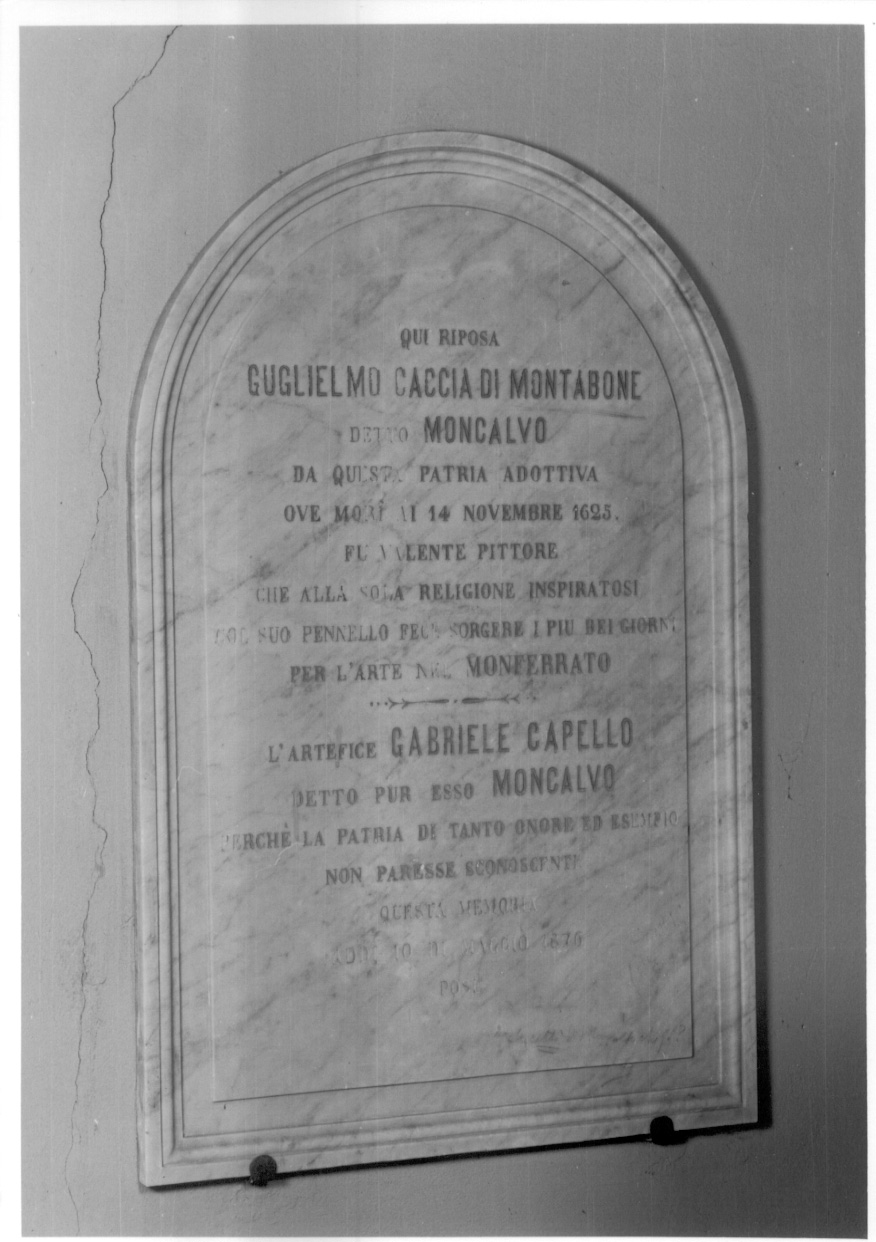 QUI RIPOSA
GUGLIELMO CACCIA DI MONTABONE
DETTO MONCALVO
DA QUESTA PATRIA ADOTTIVA
OVE MORÌ AI 14 NOVEMBRE 1625.
FU VALENTE PITTORE
CHE ALLA SOLA RELIGIONE INSPIRATOSI
COL SUO PENNELLO FECE SORGERE I PIU BEI GIORNI
PER L'ARTE NEL MONFERRATO
L'ARTEFICE GABRIELE CAPELLO
DETTO PUR ESSO MONCALVO
PERCHÈ LA PATRIA DI TANTO ONORE ED ESEMPIO
NON PARESSE SCONOSCENTE
QUESTA MEMORIA
10 MAGGIO
POSE